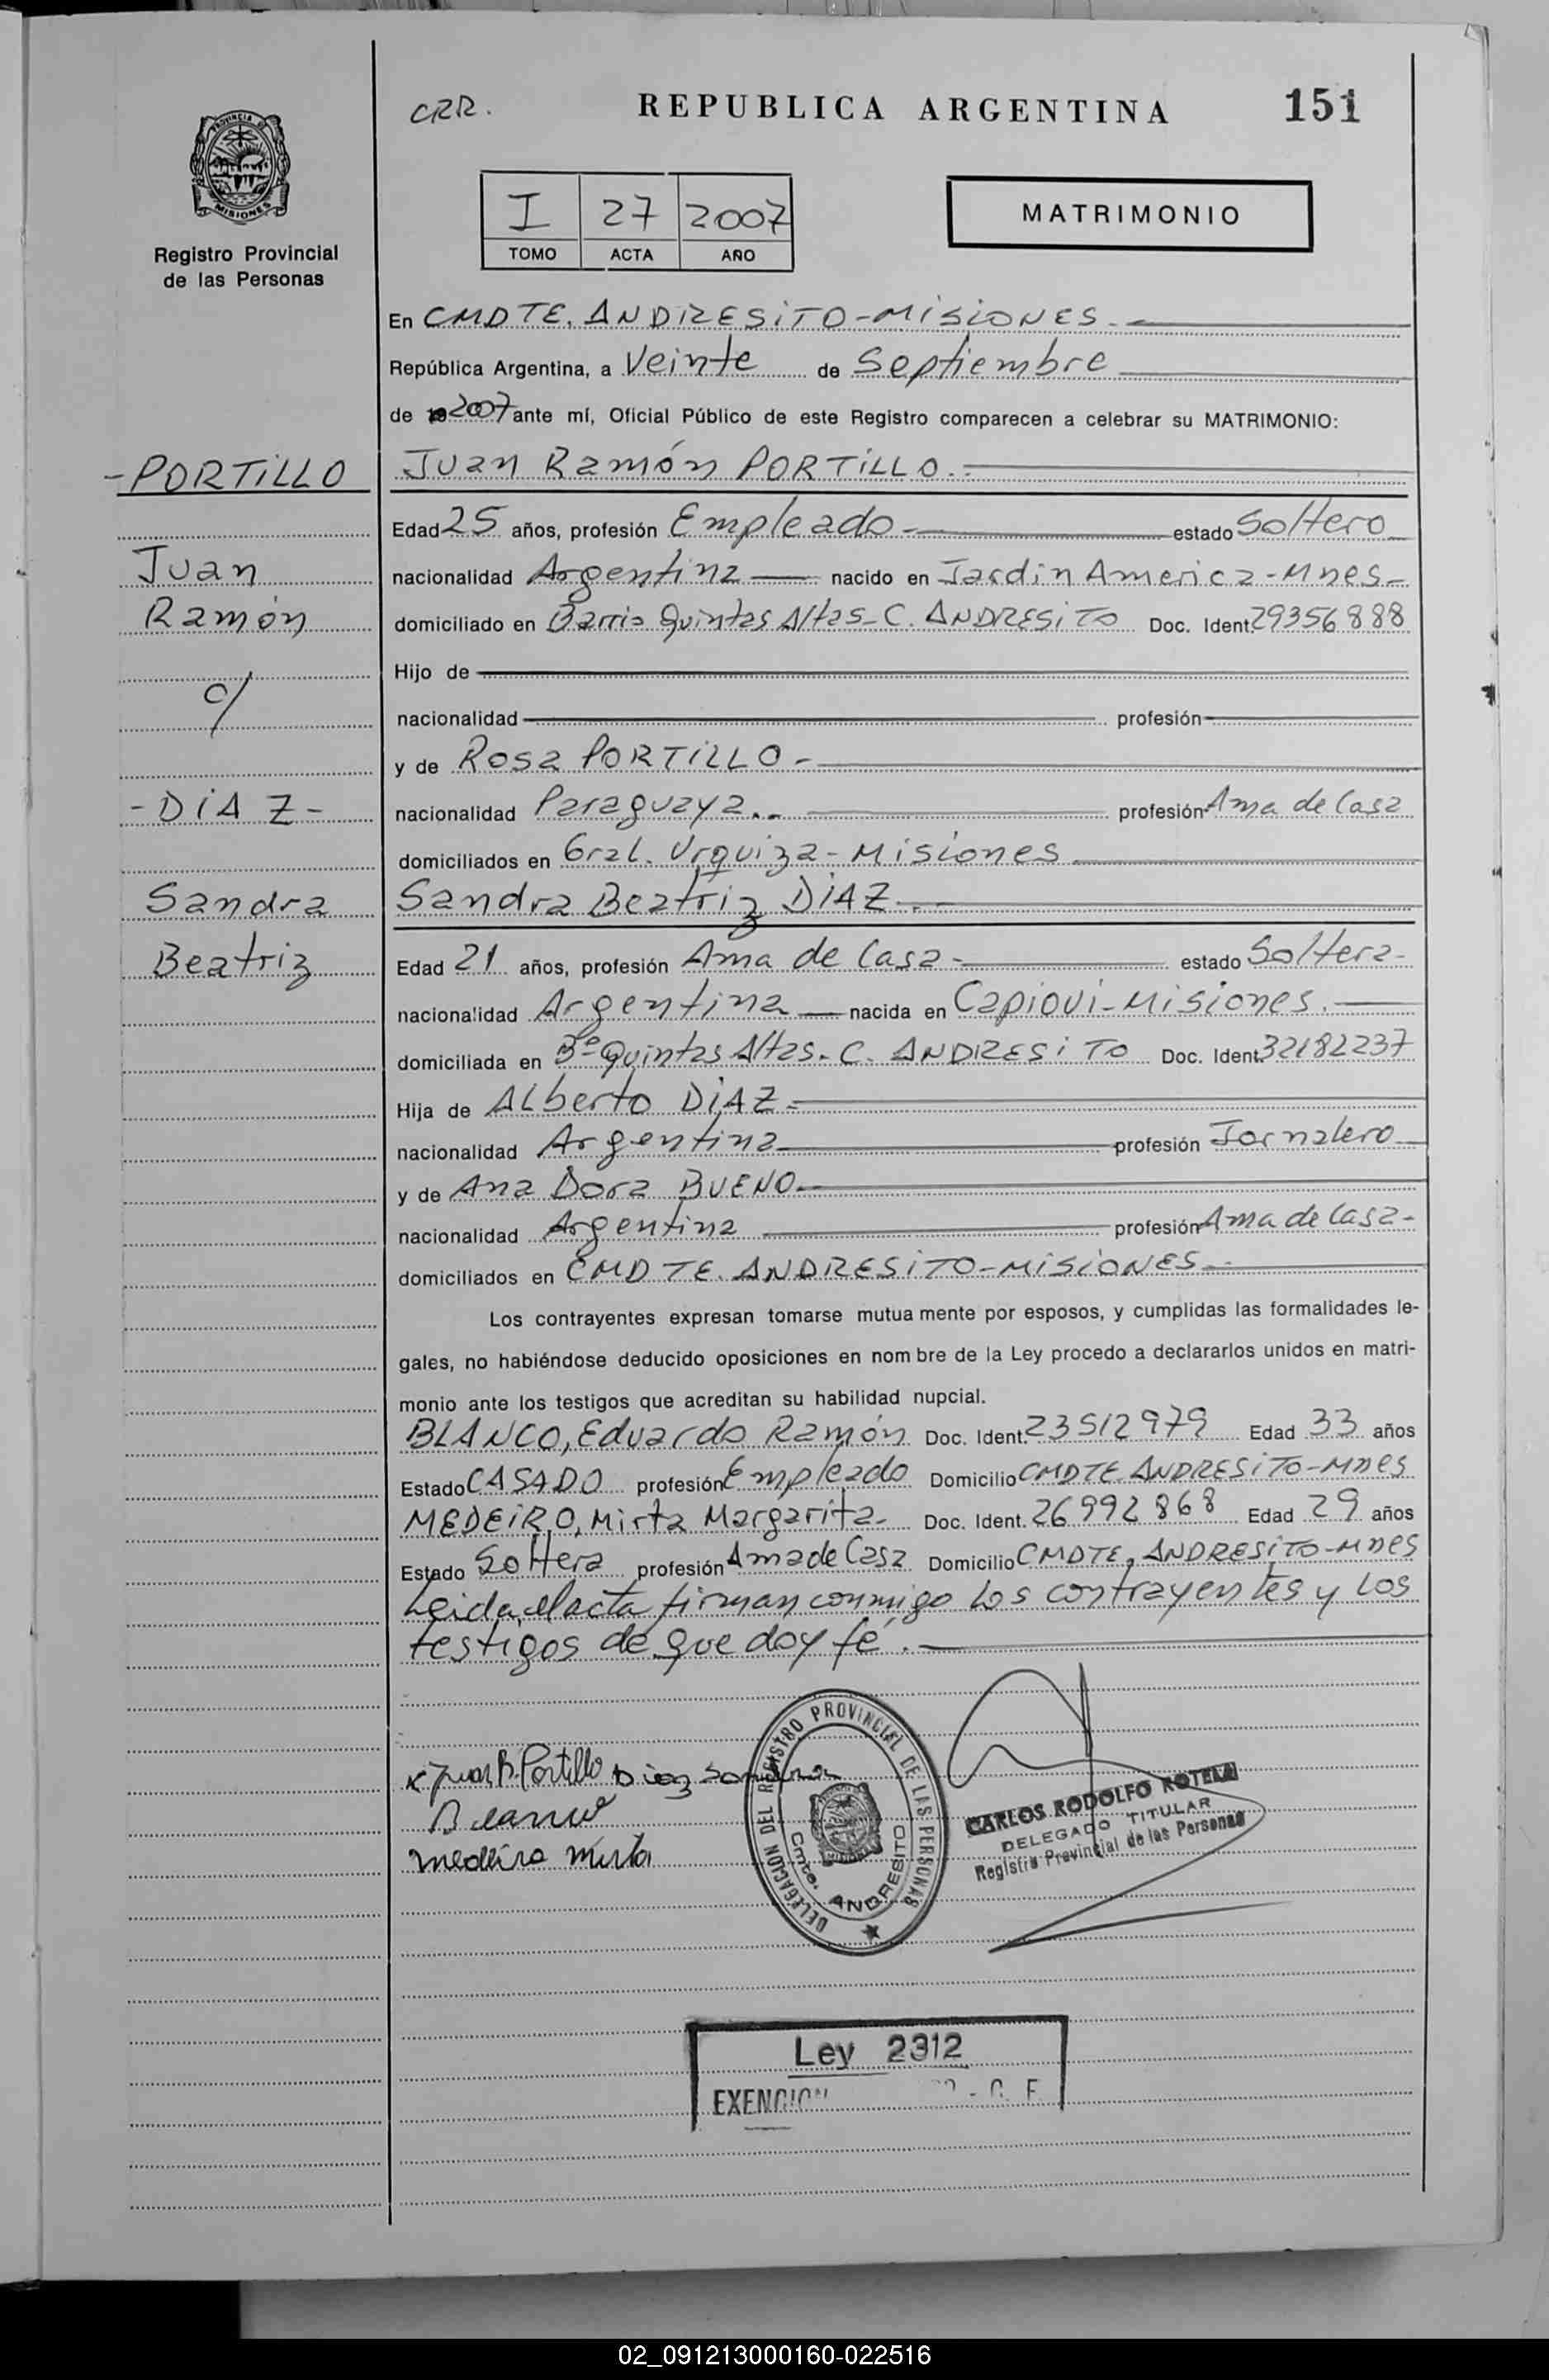 CRR.
REPUBLICA ARGENTINA
151
PROVINCIA DE
MISIONES
Registro Provincial
de las Personas
I 27 2007
TOMO ACTA AÑO
MATRIMONIO
En CMDTE. ANDRESiTO-MiSiONES.-
República Argentina, a Veinte de Septiembre
de 2007 ante mí, Oficial Público de este Registro comparecen a celebrar su MATRIMONIO:
-PORTiLLO
Juan Ramón PORTiLLO.-
Edad 25 años, profesión Empleado- estado Soltero
Juan
nacionalidad Argentina nacido en Jardin America-Mnes-
Ramón
domiciliado en Barrio Quintas Altas-C. ANDRESiTO Doc. Ident. 29356888
Hijo de
c/
nacionalidad profesión
y de Rosa PORTiLLO-
-DiAZ-
nacionalidad Paraguaya.- profesión Ama de Casa
domiciliados en Gral. Urquiza-Misiones
Sandra
Sandra Beatriz DiAZ.-
Beatriz
Edad 21 años, profesión Ama de Casa- estado Soltera-
nacionalidad Argentina nacida en Capiovi-Misiones.
domiciliada en Bº Quintas Altas-C. ANDRESiTO Doc. Ident. 32182237
Hija de ALberto DiAZ-
nacionalidad Argentina profesión Jornalero
y de Ana Dora BUENO.-
nacionalidad Argentina profesión Ama de Casa-
domiciliados en CMDTE. ANDRESiTO-MiSiONES-
Los contrayentes expresan tomarse mutua mente por esposos, y cumplidas las formalidades le-
gales, no habiéndose deducido oposiciones en nom bre de la Ley procedo a declararlos unidos en matri-
monio ante los testigos que acreditan su habilidad nupcial.
BLANCO, Eduardo Ramón Doc. Ident. 23512979 Edad 33 años
Estado CASADO profesión Empleado Domicilio CMDTE. ANDRESiTO-Mnes
MEDEiRO, Mirta Margarita- Doc. Ident. 26992868 Edad 29 años
Estado Soltera profesión Ama de Casa Domicilio CMDTE. ANDRESiTO-Mnes
Leida el acta firman conmigo Los contrayentes y Los
testigos de que doy fé.-
Juan R. Portillo Diaz Sandra
Blanco
Medeiro Mirta
DELEGACION DEL REGISTRO PROVINCIAL DE LAS PERSONAS
Cmte. ANDRESITO
CARLOS RODOLFO ROTELA
DELEGADO TITULAR
Registro Provincial de las Personas
Ley 2312
EXENCION
02_091213000160-022516